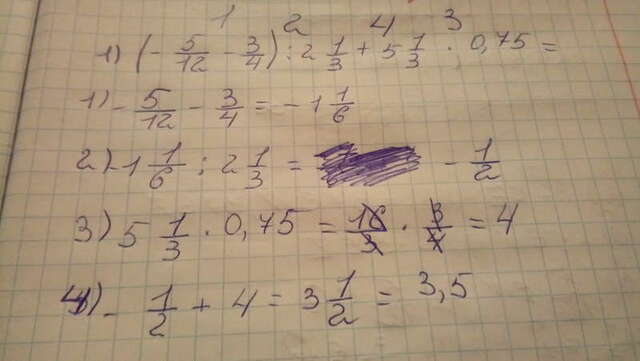 1 2 4 3
1) (- 5/12 - 3/4) : 2 1/3 + 5 1/3 · 0,75 =
1) - 5/12 - 3/4 = - 1 1/6
2) - 1 1/6 : 2 1/3 = - 1/2
3) 5 1/3 · 0,75 = 16/3 · 3/4 = 4
4) - 1/2 + 4 = 3 1/2 = 3,5